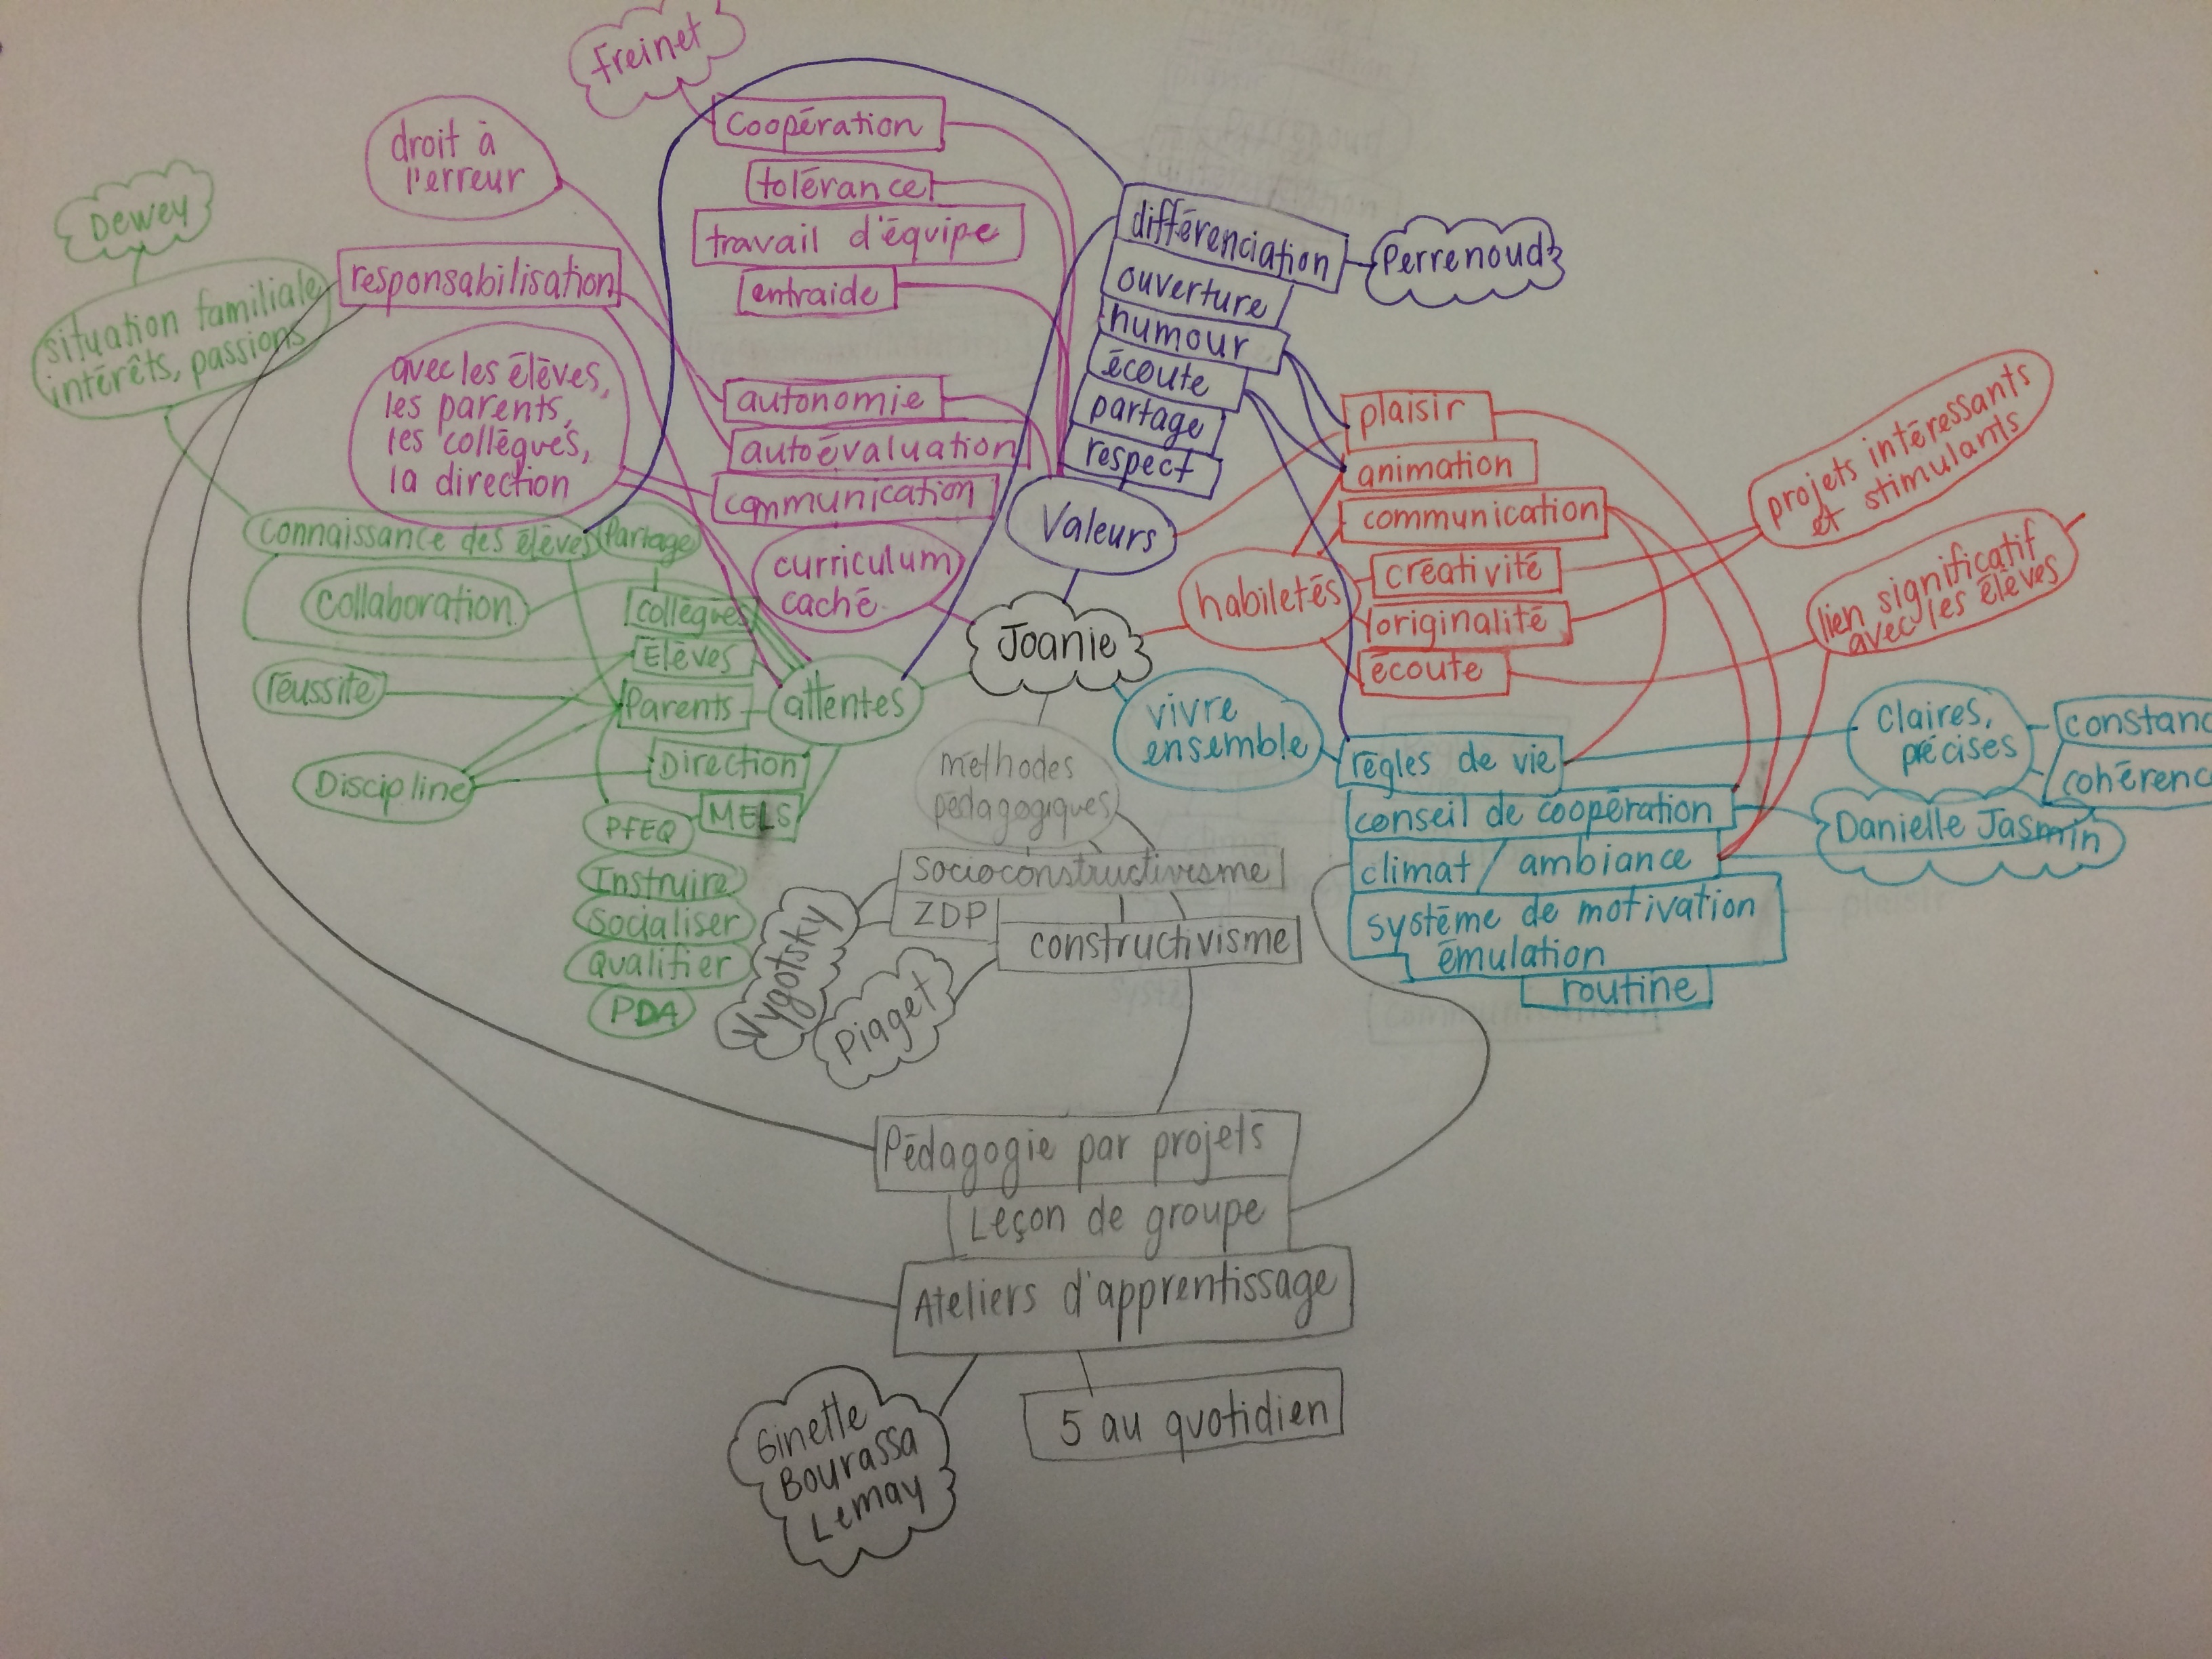 Freinet
coopération
tolérance
travail d'équipe
entraide
droit à
l'erreur
Dewey
situation familiale
intérêts, passions
responsabilisation
avec les élèves,
les parents,
les collègues,
la direction
autonomie
autoévaluation
communication
curriculum
caché
différenciation
Perrenoud
ouverture
humour
écoute
partage
respect
Valeurs
Joanie
habiletés
plaisir
animation
communication
créativité
originalité
écoute
projets intéressants
et stimulants
lien significatif
avec les élèves
connaissance des élèves
Partage
collaboration
collègues
Élèves
réussite
Parents
attentes
Discipline
Direction
MELS
PFEQ
Instruire
Socialiser
Qualifier
PDA
vivre
ensemble
règles de vie
claires,
précises
constanc
cohérenc
conseil de coopération
Danielle Jasmin
climat / ambiance
système de motivation
émulation
routine
méthodes
pédagogiques
Socioconstructivisme
ZDP
constructivisme
Vygotsky
Piaget
Pédagogie par projets
Leçon de groupe
Ateliers d'apprentissage
5 au quotidien
Ginette
Bourassa
Lemay